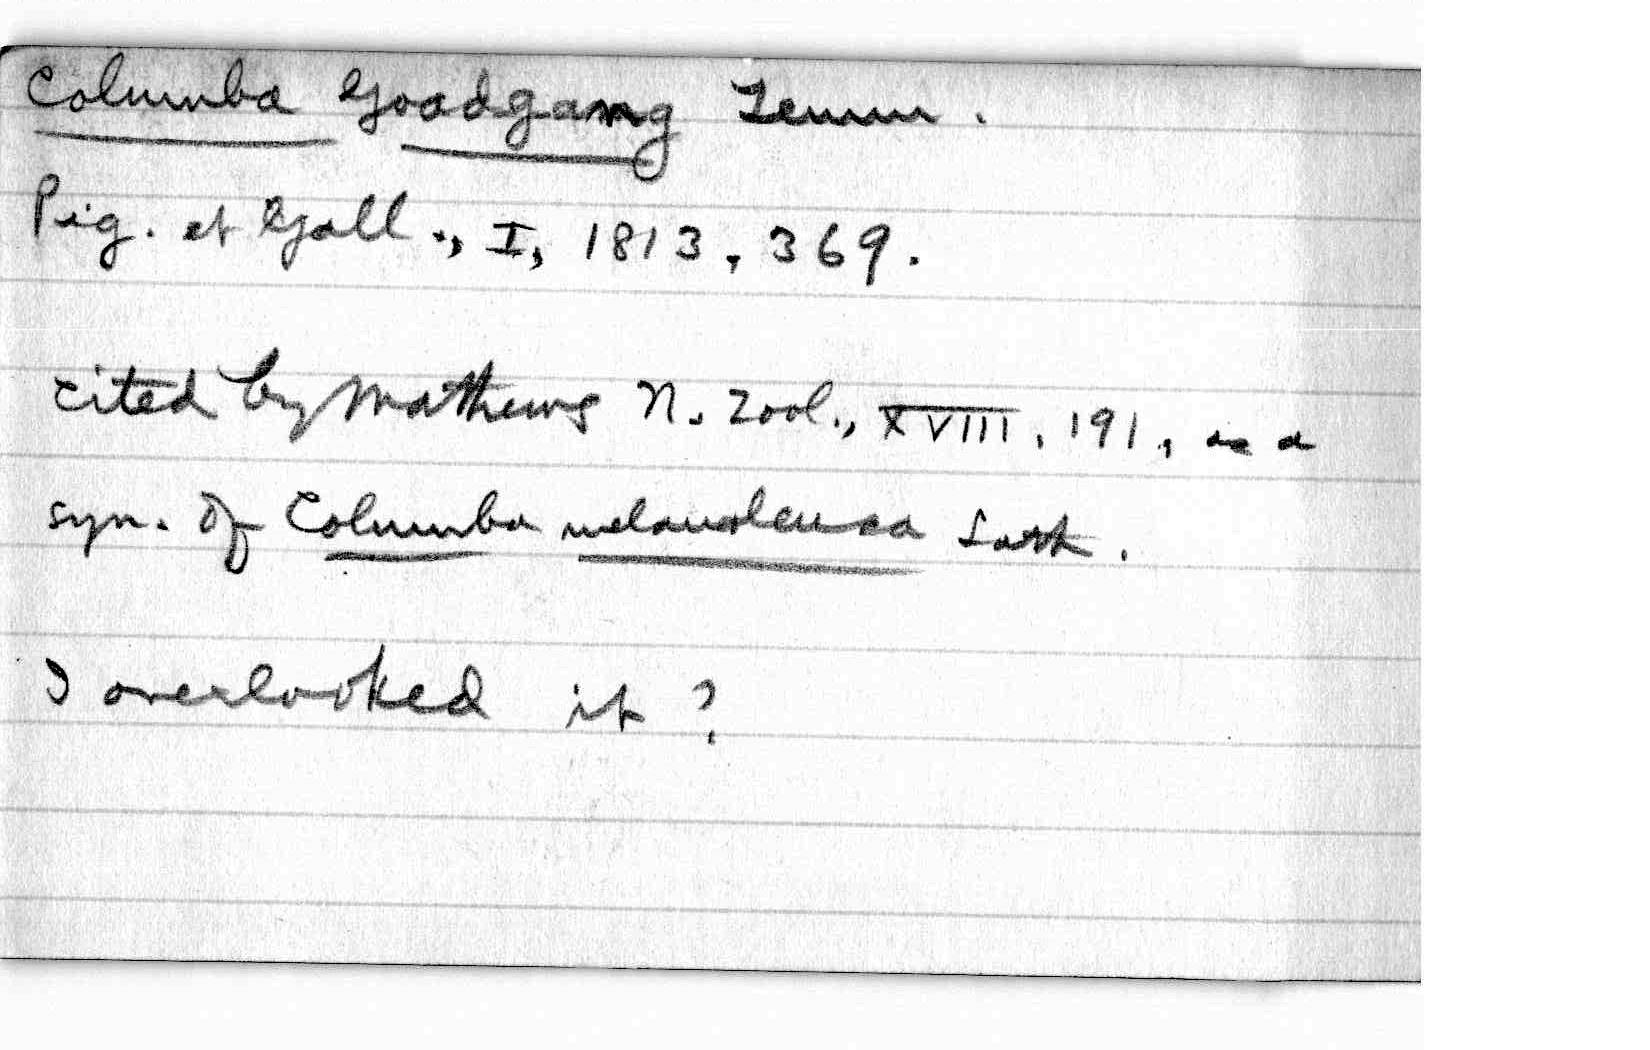 Columba Goadgang Temm.
Pig. et Gall., I, 1813, 369.
cited by Mathews N. Zool., XVIII, 191, as a
syn. of Columba melanoleuca Lath.
I overlooked it?